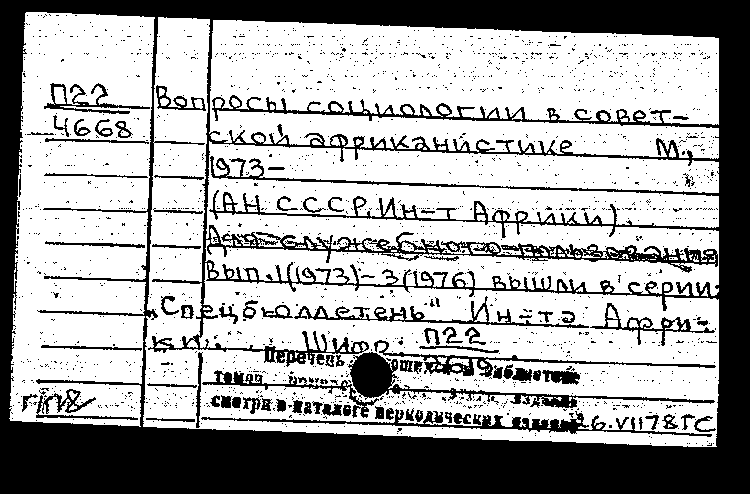 П22
4668
Вопросы социологии в совет-
ской африканистике М.,
1973-
(АН СССР. Ин-т Африки).
Для служебного пользования
Вып. 1(1973)-3(1976) вышли в серии:
„Спецбюллетень" Ин-та Афри-
ки. Шифр П22
Перечень библиотеке
томов,
смотри в каталоге периодических изданий
26.VII78 ГС